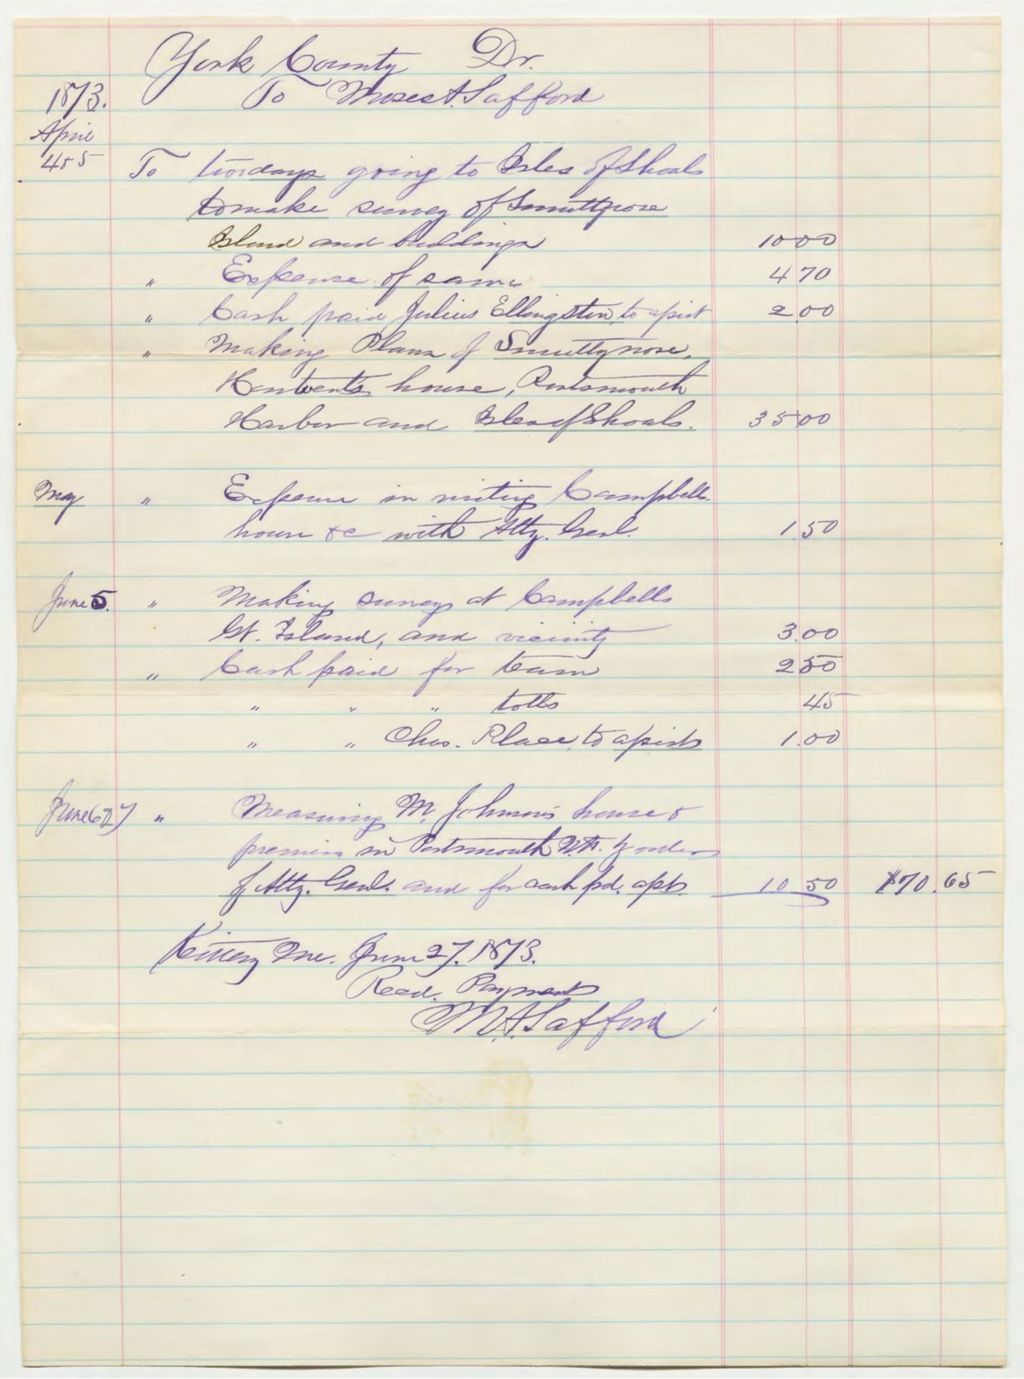 York County Dr.
To Moses A. Safford
1873.
April
4 & 5 To two days going to Isles of Shoals
to make survey of Smuttynose
Island and buildings 10 00
" Expense of same 4 70
" Cash paid Julius Ellingsten, to assist 2 00
" Making Plans of Smuttynose,
Hontvents house, Portsmouth
Harbor and Isles of Shoals. 35 00
May " Expense in visiting Campbells
house &c with Atty. Genl. 1.50
June 5. " Making survey at Campbells
Gt. Island, and vicinity 3.00
" Cash paid for team 2 50
" " " tolls 45
" " Chas. Place, to assist 1.00
June 6 & 7 " Measuring M. Johnson's house &
premises in Portsmouth N.H. by order
of Atty. Genl. and for cash pd. asst. 10 50 $70.65
Kittery Me. June 27. 1873.
Recd. Payment
M. A. Safford